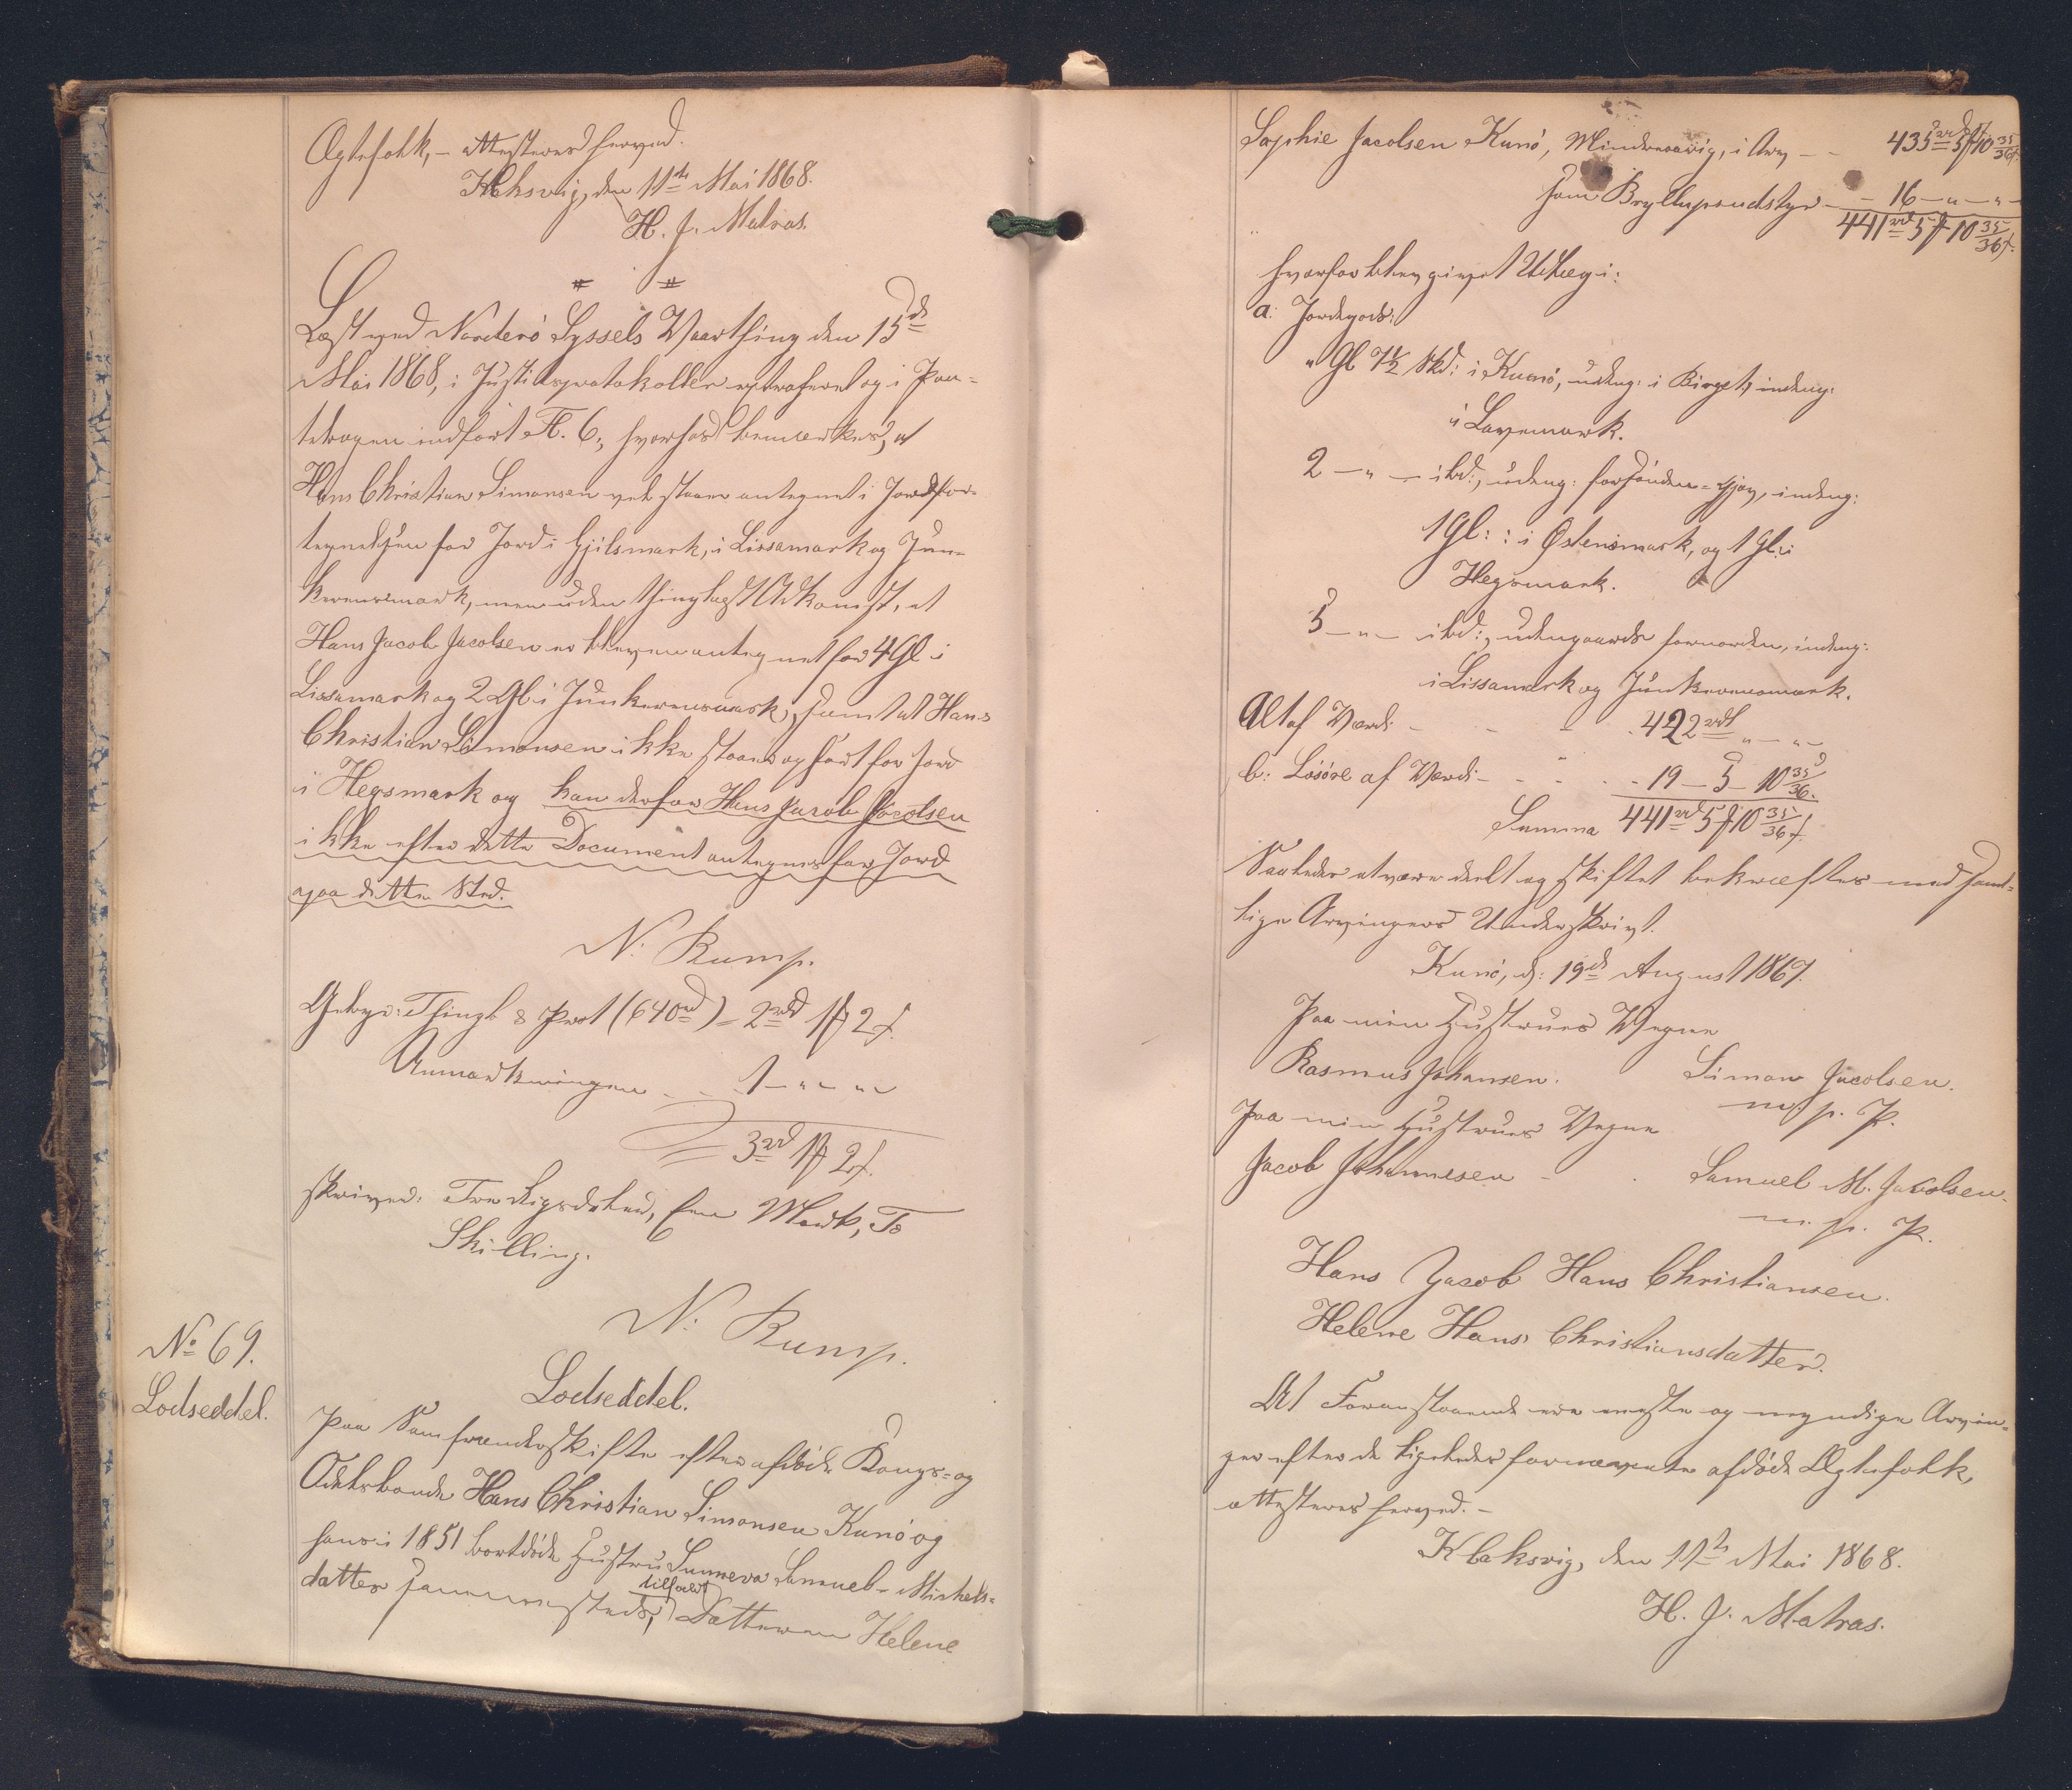 Ægtefolk, – attesteres herved.
Klaksvig, den 11te Mai 1868.
H. J. Matras.
Læst ved Norderö Syssels Vaarthing den 15de
Mai 1868, i Justitsprotokollen extraheret og i Pan-
tebogen indført Fl. 6, hvorhos bemærkes, at
Hans Christian Simonsen vel staaer antegnet i Jordefor-
tegnelsen for Jord i Gjilsmark, i Lissamark og Jun-
kerensmark, men uden thinglæst Adkomst, at
Hans Jacob Jacobsen er bleven antegnet for 4 Gl i
Lissamark og 2 Gl i Junkerensmark, samt at Hans
Christian Simonsen ikke staaer opført for Jord
i Hegsmark og kan derfor Hans Jacob Jacobsen
ikke efter dette Document antegnes for Jord
paa dette Sted.
N. Rump.
Gebyr: Thingl & Prot (640rd) = 2rd 1 2
Anmærkningen 1 – " – " –
3rd 1 2
skriver: Tre Rigsdaler, Een Mark, To
Skilling.
N. Rump.
No 69.
Lodseddel.
Lodseddel.
Paa Samfrændeskifte efter afdøde Kongs- og
Odelsbonde Hans Christian Simonsen Kunö og
hans i 1851 bortdöde Hustru Sunneva Samuel-Michels-
datter sammesteds, tilfaldt Datteren Helene
Sophie Jacobsen Kunö, Mindreaarig, i Arv – – 435rd 5 10 35/36
som Bryllupsudstyr – – 16 – " – " –
441rd 5 10 35/36
hvorfor blev givet Udlæg i:
a: Jordegods:
" Gl 7½ Skd: i Kunö, udeng: i Birget, indeng:
i Lavemark.
2 – " – ibd:, udeng: forsönden-Gjov, indeng:
1 Gl: i Østenimark, og 1 Gl: i
Hegsmark.
5 – " – ibd:, udengaards fornorden, indeng:
i Lissamark og Junkerensmark.
Alt af Værdi – – – 422rd " – " –
b: Lösöre af Værdi – – – – 19 – 5 – 10 35/36.
Summa 441rd 5 10 35/36
Saaledes at være deelt og skiftet bekræftes med samt-
lige Arvingers Underskrivt.
Kunö, d: 19de August 1867.
Paa min Hustrues Vegne
Rasmus Johansen. Simon Jacobsen.
m. p. P.
Paa min Hustrues Vegne
Jacob Johannesen – Samuel M. Jacobsen.
m. p. P.
Hans Jacob Hans Christiansen.
Helene Hans Christiansdatter.
At Foranstaaende ere eneste og myndige Arvin-
ger efter de ligeledes fornævnte afdöde Ægtefolk,
attesteres herved. –
Klaksvig, den 11te Mai 1868.
H. J. Matras.